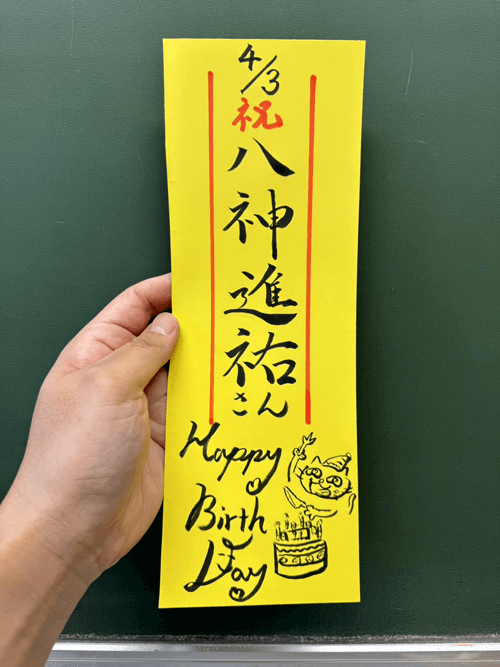 4/3
祝
八神進祐さん
Happy
Birth
Day